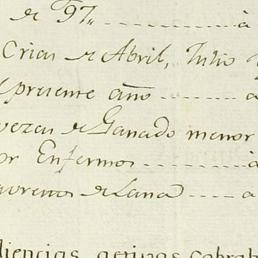 de 97,, ------ à
Crias de Abril, Julio y
presente año ------ à
de Ganado menor
por Enfermos ------ à
de Lana ------ à
diencias activas cobrab